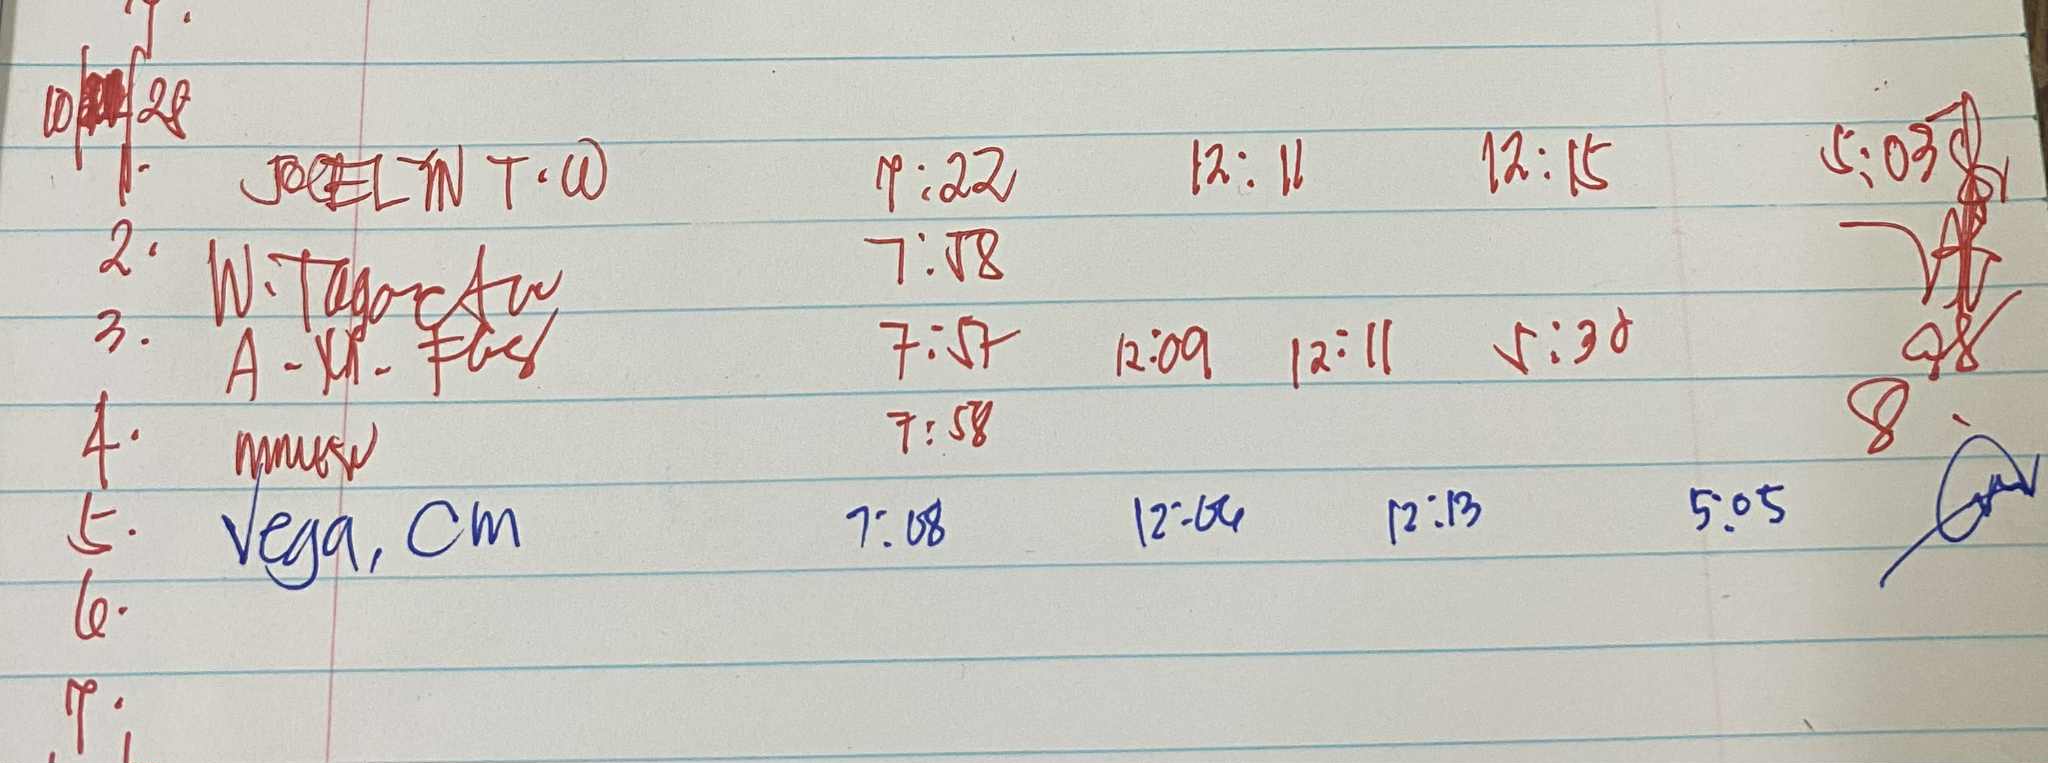 7.
10/ /28
1. JOCELYN T.W 7:22 12:11 12:15 5:03
2. W. 7:58
3. A 7:57 12:09 12:11 5:30
4. 7:58
5. Vega, CM 7:08 12:06 12:13 5:05
6.
7.